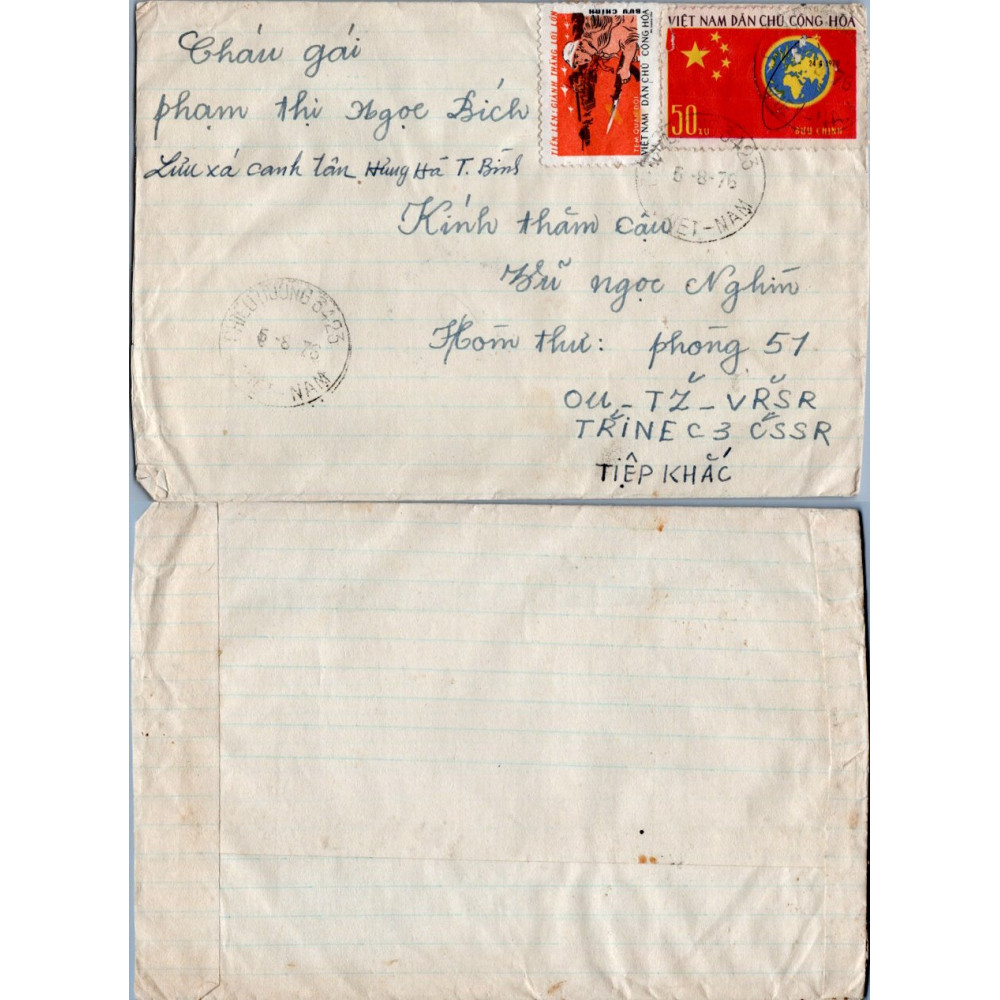 Cháu gái
phạm thị Ngọc Bích
Lưu xá canh tân Hưng Hà T. Bình
Kính thăm cậu
Vũ ngọc Nghin
Hòm thư: phòng 51
OU_TŽ_VŘSR
TŘINEC 3 ČSSR
TIỆP KHẮC
TIẾN LÊN! GIÀNH THẮNG LỢI LỚN
BƯU CHÍNH
TEM QUÂN ĐỘI
VIỆT NAM DÂN CHỦ CỘNG HÒA
VIỆT NAM DÂN CHỦ CỘNG HÒA
24.4.1970
50 XU
BƯU CHÍNH
6-8-76
VIET-NAM
6423
6-8-76
VIET-NAM